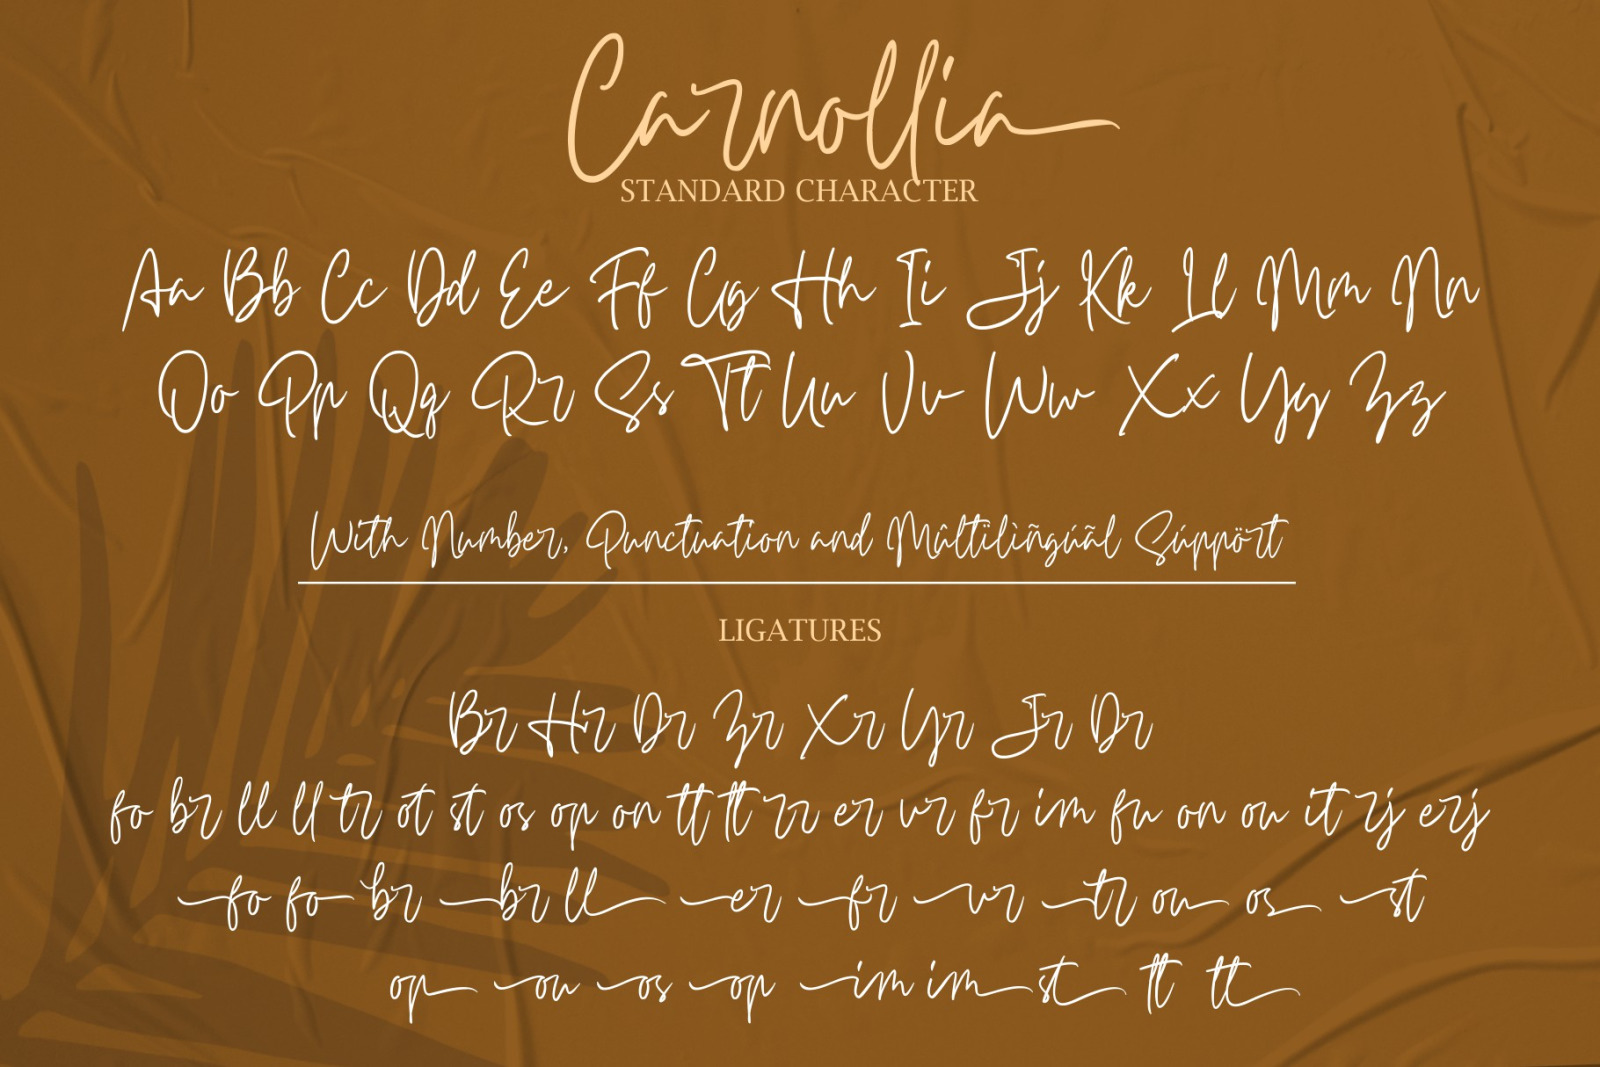 Carnollia
STANDARD CHARACTER
Aa Bb Cc Dd Ee Ff Gg Hh Ii Jj Kk Ll Mm Nn
Oo Pp Qq Rr Ss Tt Uu Vv Ww Xx Yy Zz
With Number, Punctuation and Mûltïlìñgúãl Súppört
LIGATURES
Br Hr Dr Zr Xr Yr Jr Dr
fo br ll ll tr ot st os op on tt tt rr er vr fr im fu on ou it rj erj
fo fo br br ll er fr vr tr ou os st
op ou os op im im st tt tt